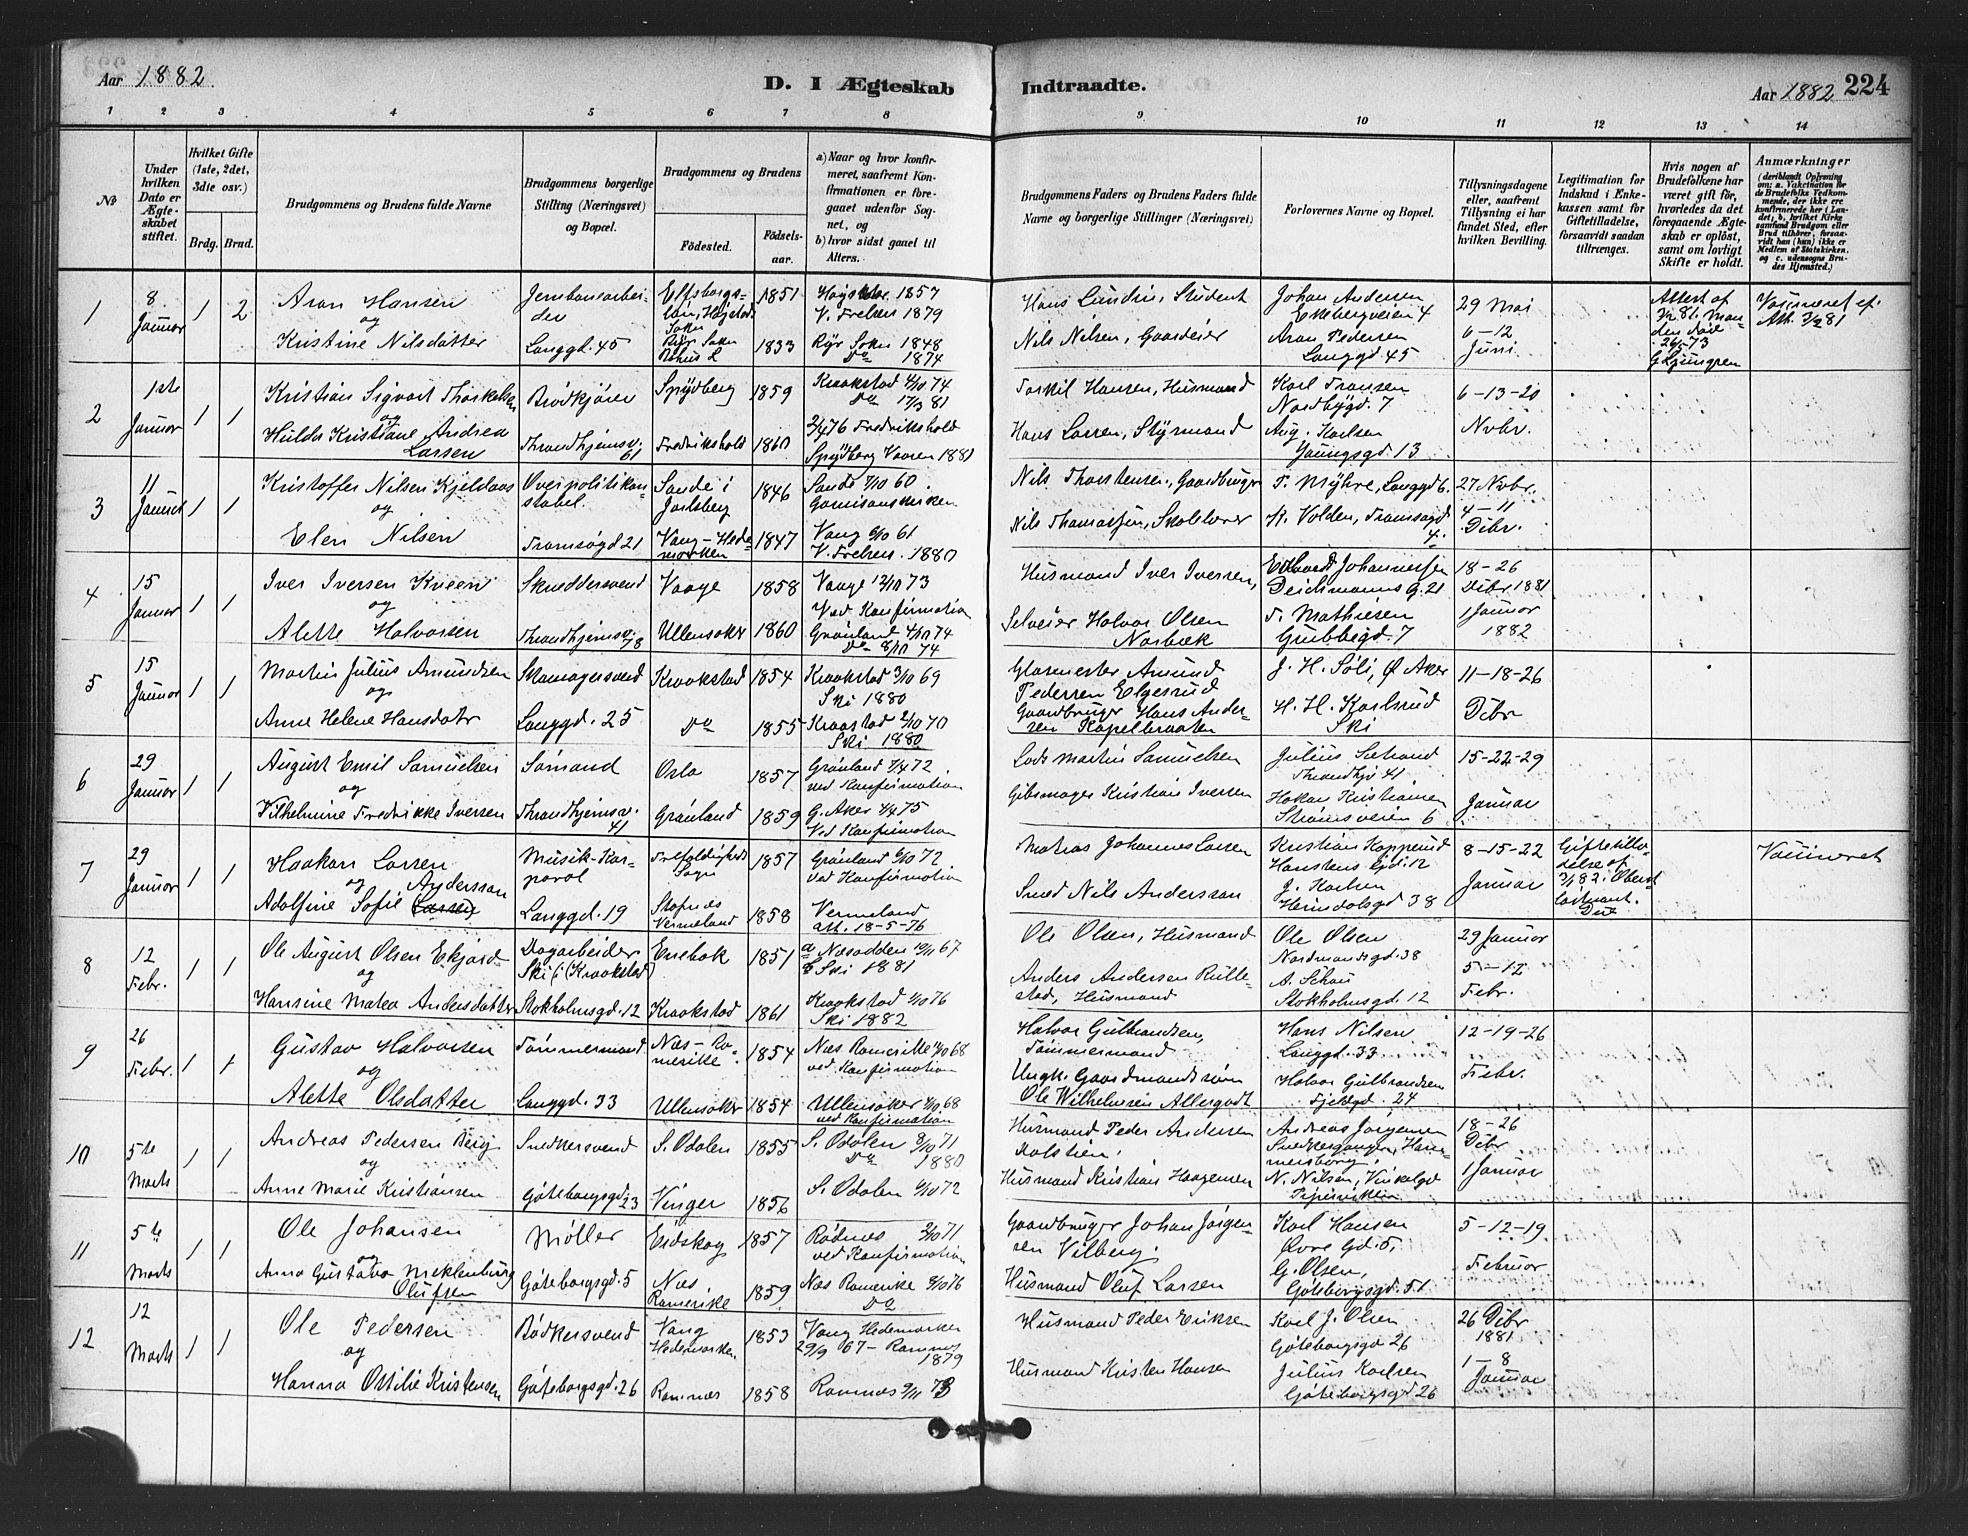 Aar 1882.
D. I Ægteskab
Indtraadte.
Aar 1882
224
1 2 3 4 5 6 7 8 9 10 11 12 13 14
No
Under hvilken Dato er Ægteskabet stiftet.
Hvilket Gifte (1ste, 2det, 3die osv.)
Brdg. Brud.
Brudgommens og Brudens fulde Navne
Brudgommens borgerlige Stilling (Næringsvei) og Bopæl.
Brudgommens og Brudens
Födested.
Födselsaar.
a) Naar og hvor konfirmeret, saafremt Konfirmationen er foregaaet udenfor Sognet, og
b) hvor sidst gaaet til Alters.
Brudgommens Faders og Brudens Faders fulde Navne og borgerlige Stillinger (Næringsvei)
Forlovernes Navne og Bopæl.
Tillysningsdagene eller, saafremt Tillysning ei har fundet Sted, efter hvilken Bevilling.
Legitimation for Indskud i Enkekassen samt for Giftetilladelse, forsaavidt saadan tiltrænges.
Hvis nogen af Brudefolkene har været gift för, hvorledes da det foregaaende Ægteskab er oplöst, samt om lovligt Skifte er holdt.
Anmærkninger
(deriblandt Oplysning om: a. Vakcination for de Brudefolks Vedkommende, der ikke ere konfirmerede her i Landet; b. hvilket Kirkesamfund Brudgom eller Brud tilhører, forsaavidt han (hun) ikke er Medlem af Statskirken, og c. udensogns Brudes Hjemsted.)
1
8 Januar
1 2
Aron Hansen
og
Kristine Nilsdatter
Jernbanearbeider
Langgd. 45
Elfsborgslän,
1851
1833
1857
V. Frelsers 1879
Ryr Sokn 1848
Do 1874
Hans Lundin, Student
Nils Nilsen, Gaardeier
Johan Andersen
Ekebergveien 4
Aron Pedersen
Langgd 45
29 Mai
6-12
Juni
Attest af
Vaccineret
2
1ste Januar
1 1
Kristian Sigvart Thorkelsen
og
Hulda Kristiane Andrea
Larsen
Brödkjörer
Throndhjemsv. 61
Spydberg
Fredrikshald
1859
1860
Kraakstad 4/10 74
Do 17/3 81
2/4 76 Fredrikshald
Spydberg Vaaren 1881
Torkil Hansen, Husmand
Hans Larsen, Styrmand
Karl Fransen
Nordbygd. 7
Aug. Karlsen
Youngsgd. 13
6-13-20
Nvbr.
3
11 Januar
1 1
Kristoffer Nilsen Kjeldaas
og
Elen Nilsen
Overpolitikonstabel.
Tromsøgd 21
Sande i Jarlsberg
Vang-Hedemarken
1846
1847
Sande 7/10 60.
Garnisonskirken
Vang 6/10 61
V. Frelsers. 1880
Nils Thorstensen, Gaardbruger
Nils Thomassen, Skolelærer
T. Myhre, Langgd 6.
N. Volden, Tromsøgd 4.
27 Nvbr.
4-11
Dcbr.
4
15 Januar
1 1
Iver Iversen Kveen
og
Alette Halvorsen
Skræddersvend
Throndhjemsv. 78
Vaage
Ullensaker
1858
1860
Vaage 12/10 73
Ved Konfirmation
Grønland 4/10 74
Do 8/10 74
Husmand Iver Iversen,
Selveier Halvor Olsen
Norbæk
Edvard Johannessen
Deichmanns G. 21
T. Mathiesen
Grubbegd. 7
18-26
Dcbr 1881
1 Januar
1882
5
15 Januar
1 1
Martin Julius Amundsen
og
Anne Helene Hansdatr
Skomagersvend
Langgd. 25
Kraakstad
Do
1854
1855
Kraakstad 3/10 69
Ski 1880
Kraakstad 2/10 70
Ski 1880
Glarmester Amund
Pedersen Elgesrud
Gaardbruger Hans Andersen Kapelbraaten
J. H. Søli, Ø Aker
H. H. Karlsrud
Ski
11-18-26
Dcbr
6
29 Januar
1 1
August Emil Samuelsen
og
Vilhelmine Fredrikke Iversen
Sømand
Throndhjemsv. 41
Oslo
Grønland
1857
1859
Grønland 7/4 72
ved Konfirmation
G. Aker 4/4 75
Ved Konfirmation
Lods Martin Samuelsen
Gibsmager Kristian Iversen
Julius
Throndhjv 41
Hakon Kristiansen
Strømsveien 6
15-22-29
Januar
7
29 Januar
1 1
Haakon Larsen
og Andersson
Adolfine Sofie Larsen
Musik-Korporal
Langgd. 19
Trefoldigheds Sogn
Vermeland
1857
1858
Grønland 6/10 72
ved Konfirmation
Vermeland
att. 18-5-76
Matias Johannes Larsen
Smed Nils Andersson
Kristian Kopperud
Hanstens Gd. 12
J. Karlsen
Heimdalsgd 38
8-15-22
Januar
Giftetilladelse af
3/1 82. Oberstløitnant
Vaccineret
8
12 Febr.
1 1
Ole August Olsen Ekjord
og
Hansine Matea Andersdatter
Dagarbeider
Ski i (Kraakstad)
Stokholmsgd. 12
Enebak
Kraakstad
1851
1861
a Næsodden 10/11 67
b Ski 1881
Kraakstad 1/10 76
Ski 1882
Ole Olsen, Husmand
Anders Andersen Rullestad, Husmand
Ole Olsen
Normandsgd. 38
A. Schou
Stokholmsgd. 12
29 Januar
5-12
Febr.
9
26 Febr.
1 1
Gustav Halvorsen
og
Alette Olsdatter
Tømmermand
Langgd. 33
Næs-Romerike
Ullensaker
1854
1854
Næs Romerike 68
ved Konfirmation
Ullensaker 4/10 68
ved Konfirmation
Halvor Gulbrandsen,
Tømmermand
Ungk. Gaardmandssøn
Ole Wilhelmsen Allergodt
Hans Nilsen
Langgd. 33
Halvor Gulbrandsen
Fjeldgd. 24
12-19-26
Febr.
10
5te Marts
1 1
Andreas Pedersen Berg
og
Anne Marie Kristiansen
Snedkersvend
Göteborgsgd 23
S. Odalen
Vinger
1855
1856
S. Odalen 8/10 71
Do 1880
S. Odalen 6/10 72
Husmand Peder Andersen
Husmand Kristian Haagensen
Andreas Jørgensen
Snedkergangen, Hammersborg.
N. Nilsen, Vinkelgd
Pipervikken
18-26
Dcbr
1 Januar
11
5te Marts
1 1
Ole Johansen
og
Anna Gustava Meklenburg
Olufsen
Møller
Göteborgsgd. 5
Eidskog
Næs, Romerike
1857
1859
Rødnes 2/10 71
ved Konfirmation
Næs Romerike 8/10 76
Do
Gaardbruger Johan Jørgensen Vilberg.
Husmand Oluf Larsen
Karl Hansen
Øvre Gd. 5,
G. Olsen,
Göteborgsgd. 51
5-12-19
Februar
12
12 Marts
1 1
Ole Pedersen
og
Hanna Ottilie Kristensen
Bødkersvend
Göteborgsgd. 26
Vang Hedemarken.
Ramnæs
1853
1858
Vang Hedemarken
29/9 67 - Ramnes
1879
Ramnæs 9/11 73
Husmand Peder Eriksen
Husmand Kristen Hansen
Karl J. Olsen
Göteborgsgd 26
Julius Karlsen
Göteborgsgd 26
26 Dcbr
1881
1-8
Januar